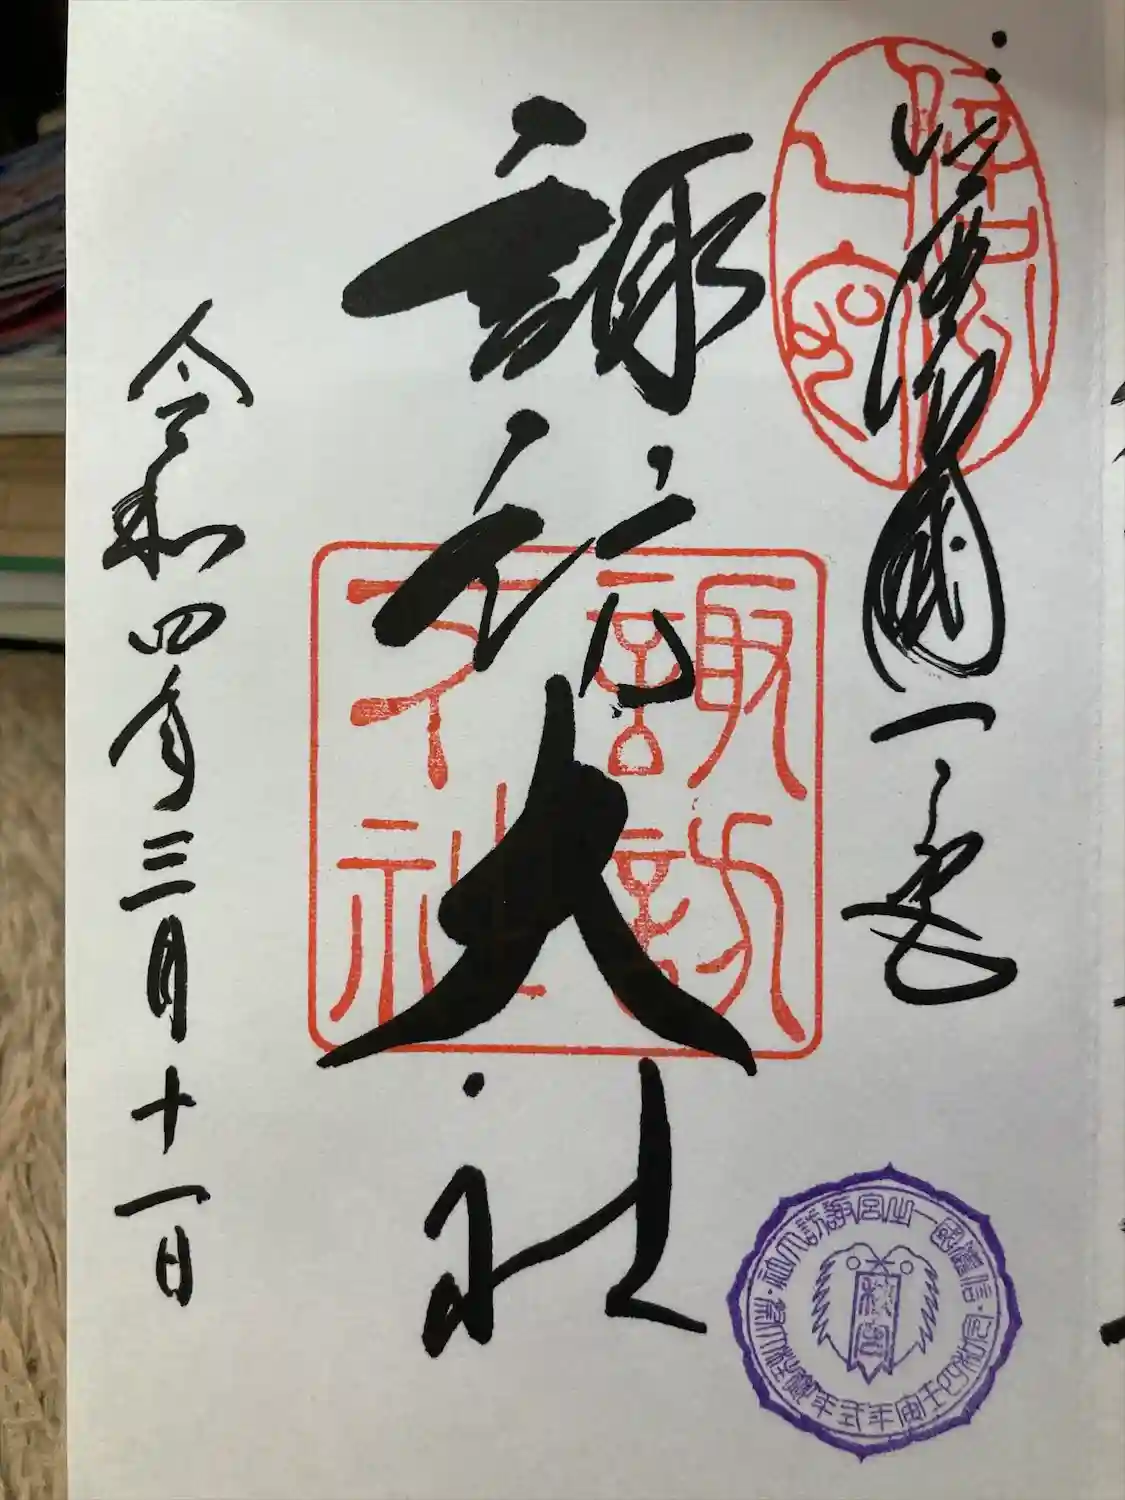 信濃國一之宮
諏訪大社
諏訪大社
令和四年三月十一日
信濃國一之宮諏訪大社
令和四壬寅年式年造営御柱大祭
秋宮